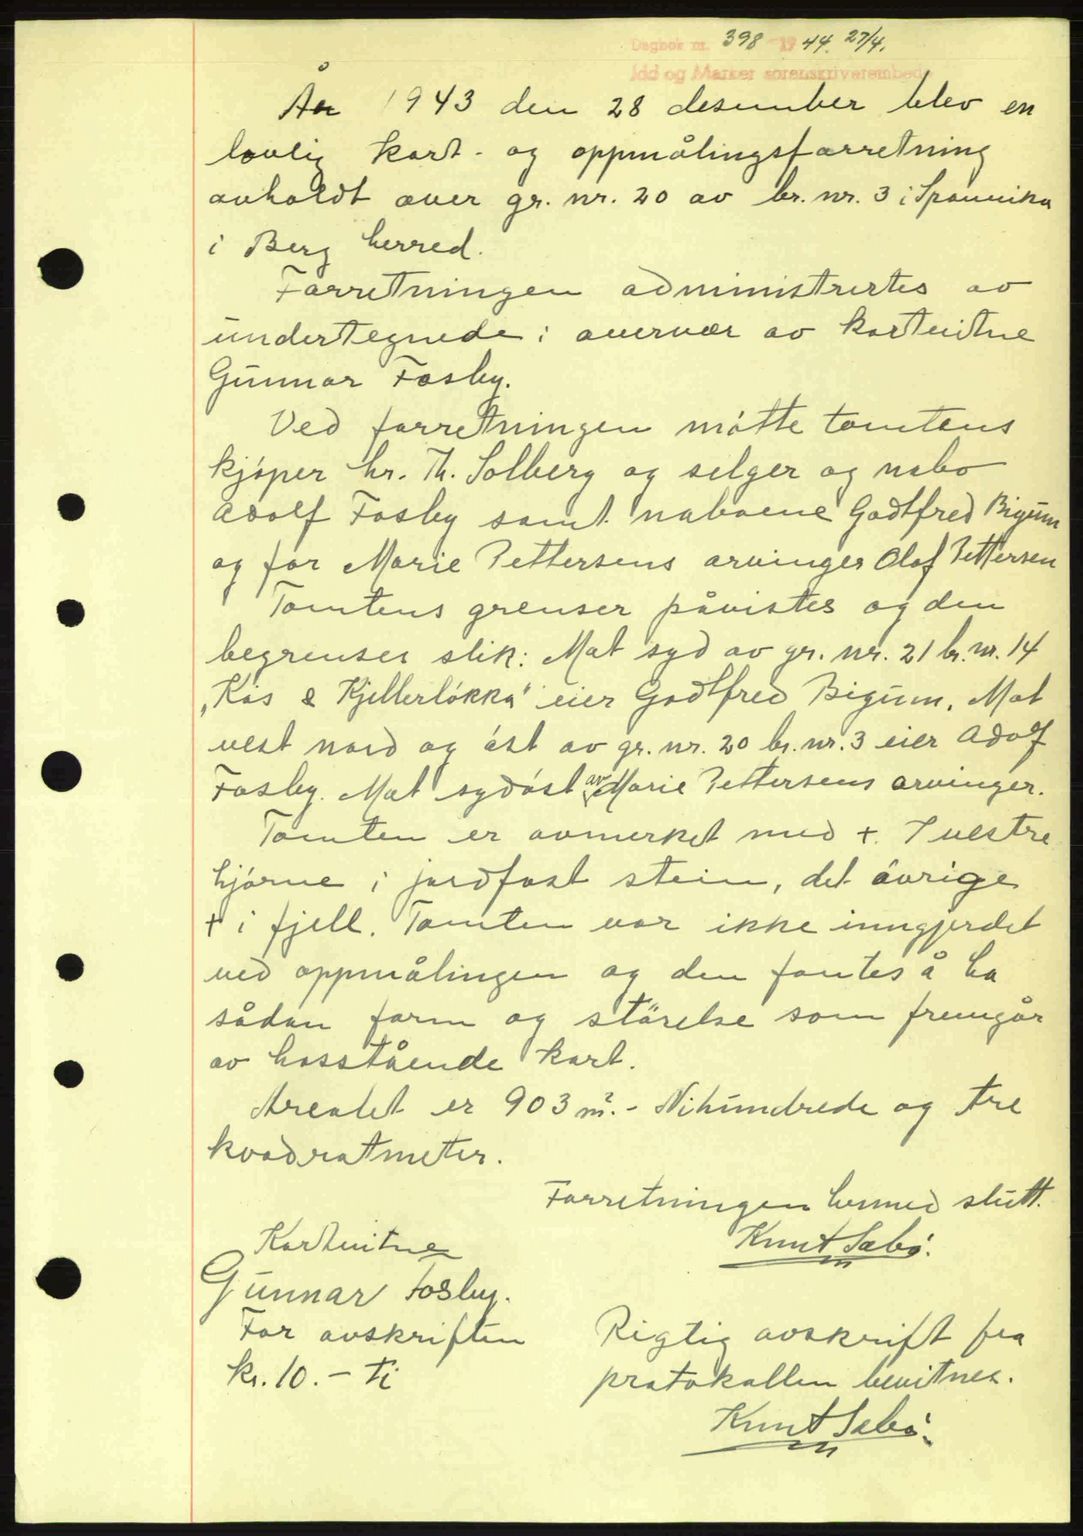 Dagbok nr. 398 1944. 27/4.
Idd og Marker sorenskriverembede
År 1943 den 28 desember blev en
lovlig kart- og oppmålingsforretning
avholdt over gr. nr. 20 av br. nr. 3 i Sponvika
i Berg herred.
Forretningen administrertes av
undertegnede i overvær av kartvitne
Gunnar Fosby.
Ved forretningen møtte tomtens
kjøper hr. Th. Solberg og selger og nabo
Adolf Fosby samt naboene Godtfred Bigum
og for Marie Pettersens arvinger Olaf Pettersen
Tomtens grenser påvistes og den
begrenses slik: Mot syd av gr. nr. 21 br. nr. 14
„Kås & Kjellerløkka" eier Godtfred Bigum. Mot
vest nord og øst av gr. nr. 20 br. nr. 3 eier Adolf
Fosby. Mot sydøst av Marie Pettersens arvinger.
Tomten er avmerket med +. I vestre
hjørne i jordfast stein, det øvrige
+ i fjell. Tomten var ikke inngjerdet
ved oppmålingen og den fantes å ha
sådan form og størelse som fremgår
av hosstående kart.
Arealet er 903 m². - Nihundrede og tre
kvadratmeter.
Forretningen hermed slutt.
Knut Sæbø.
Kartvitne
Gunnar Fosby.
For avskriften
kr. 10.- ti
Rigtig avskrift fra
protokollen bevitnes.
Knut Sæbø.